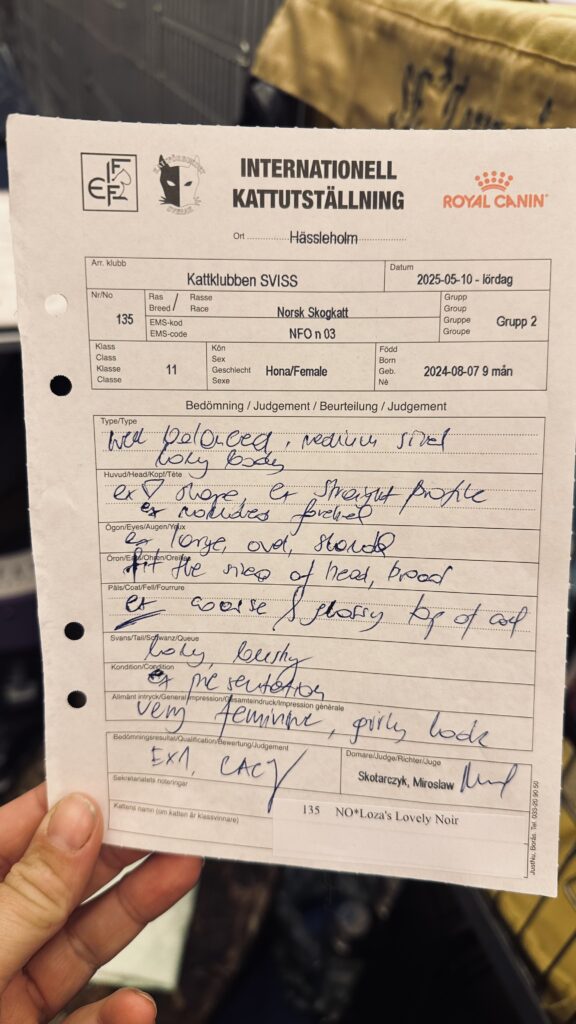 FIFe
INTERNATIONELL
KATTUTSTÄLLNING
ROYAL CANIN
Ort Hässleholm
Arr. klubb
Kattklubben SVISS
Datum
2025-05-10 - lördag
Nr/No
135
Ras Rasse
Breed/ Race
Norsk Skogkatt
EMS-kod
EMS-code
NFO n 03
Grupp
Group
Gruppe
Groupe
Grupp 2
Klass
Class
Klasse
Classe
11
Kön
Sex
Geschlecht
Sexe
Hona/Female
Född
Born
Geb.
Né
2024-08-07 9 mån
Bedömning / Judgement / Beurteilung / Jugement
Type/Type
well balanced, medium sized
body
Huvud/Head/Kopf/Tête
ex ▽ shape, ex straight profile
ex
Ögon/Eyes/Augen/Yeux
ex large, oval,
Öron/Ears/Ohren/Oreilles
fit the size of head, broad
Päls/Coat/Fell/Fourrure
ex coarse & glossy top of coat
Svans/Tail/Schwanz/Queue
long, bushy
Kondition/Condition
ex presentation
Allmänt intryck/General impression/Gesamteindruck/Impression générale
very feminine, girly look
Bedömningsresultat/Qualification/Bewertung/Judgement
EX1, CACJ
Domare/Judge/Richter/Juge
Skotarczyk, Miroslaw
Sekretariatets noteringar
Kattens namn (om katten är klassvinnare)
135 NO*Loza's Lovely Noir
JustNu, Borås. Tel. 033-20 90 50